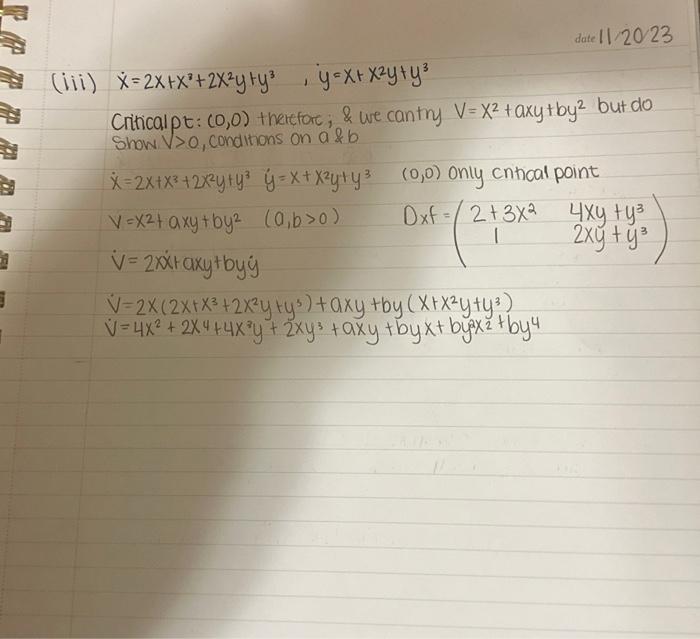 date 11/20/23
(iii) ẋ=2x+x³+2x²y+y³ , ẏ=x+x²y+y³
Critical pt: (0,0) therefore; & we can try V=x²+axy+by² but do
Show V>0, conditions on a & b
ẋ=2x+x³+2x²y+y³ ẏ=x+x²y+y³ (0,0) only critical point
V=x²+axy+by² (a,b>0) Dxf = ( 2+3x² 4xy+y³
1 2xy+y³ )
V̇=2xẋ+axy+byẏ
V̇=2x(2x+x³+2x²y+y³)+axy+by(x+x²y+y³)
V̇=4x²+2x⁴+4x³y+2xy³+axy+byx+by²x²+by⁴